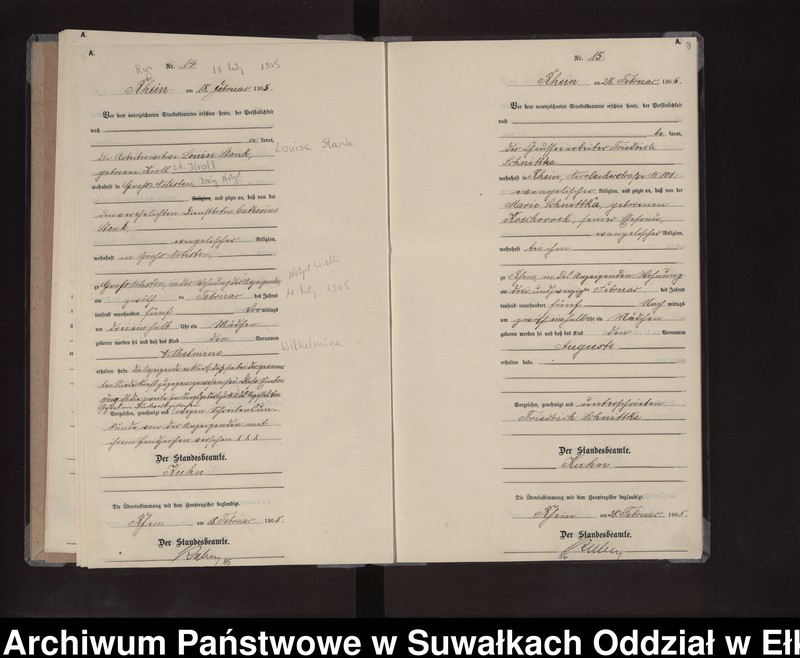 A.
A.
Ryn 18 luty 1905
Nr. 14
Rhein am 18. Februar 1905.
Vor dem unterzeichneten Standesbeamten erschien heute, der Persönlichkeit
nach
be kannt,
die Arbeiterwitwe Louise Stank,
geborene Kroll
wohnhaft in Groß Notisten
Religion, und zeigte an, daß von der
unverehelichten Dienstbotin Catharine
Stank,
evangelischer Religion,
wohnhaft in Groß Notisten,
zu Groß Notisten, in der Wohnung der Anzeigenden,
am zwölften Februar des Jahres
tausend neunhundert fünf Vor mittags
um drei einhalb Uhr ein Mädchen
geboren worden sei und daß das Kind den Vornamen
Wilhelmine
erhalten habe.
Vorgelesen, genehmigt und wegen Schreibensun-
kunde von der Anzeigenden mit
ihrem Handzeichen versehen X X X
Der Standesbeamte.
Kuhn
Die Übereinstimmung mit dem Hauptregister beglaubigt.
Rhein am 18. Februar 1905.
Der Standesbeamte.
Kuhn
Louise Stank
12 luty 1905
Wilhelmine
A.
Nr. 15
Rhein am 28. Februar 1905.
Vor dem unterzeichneten Standesbeamten erschien heute, der Persönlichkeit
nach
be kannt,
Friedrich
Schnittka
wohnhaft in Rhein,
evangelischer Religion, und zeigte an, daß von der
Marie Schnittka, geborenen
Koschorreck, seiner Ehefrau,
evangelischer Religion,
wohnhaft bei ihm
zu Rhein, in des Anzeigenden Wohnung
am drei und zwanzigsten Februar des Jahres
tausend neunhundert fünf Nach mittags
um Uhr ein Mädchen
geboren worden sei und daß das Kind den Vornamen
Auguste
erhalten habe.
Vorgelesen, genehmigt und unterschrieben
Friedrich Schnittka
Der Standesbeamte.
Kuhn
Die Übereinstimmung mit dem Hauptregister beglaubigt.
Rhein am 28. Februar 1905.
Der Standesbeamte.
Kuhn
Archiwum Państwowe w Suwałkach Oddział w Ełk